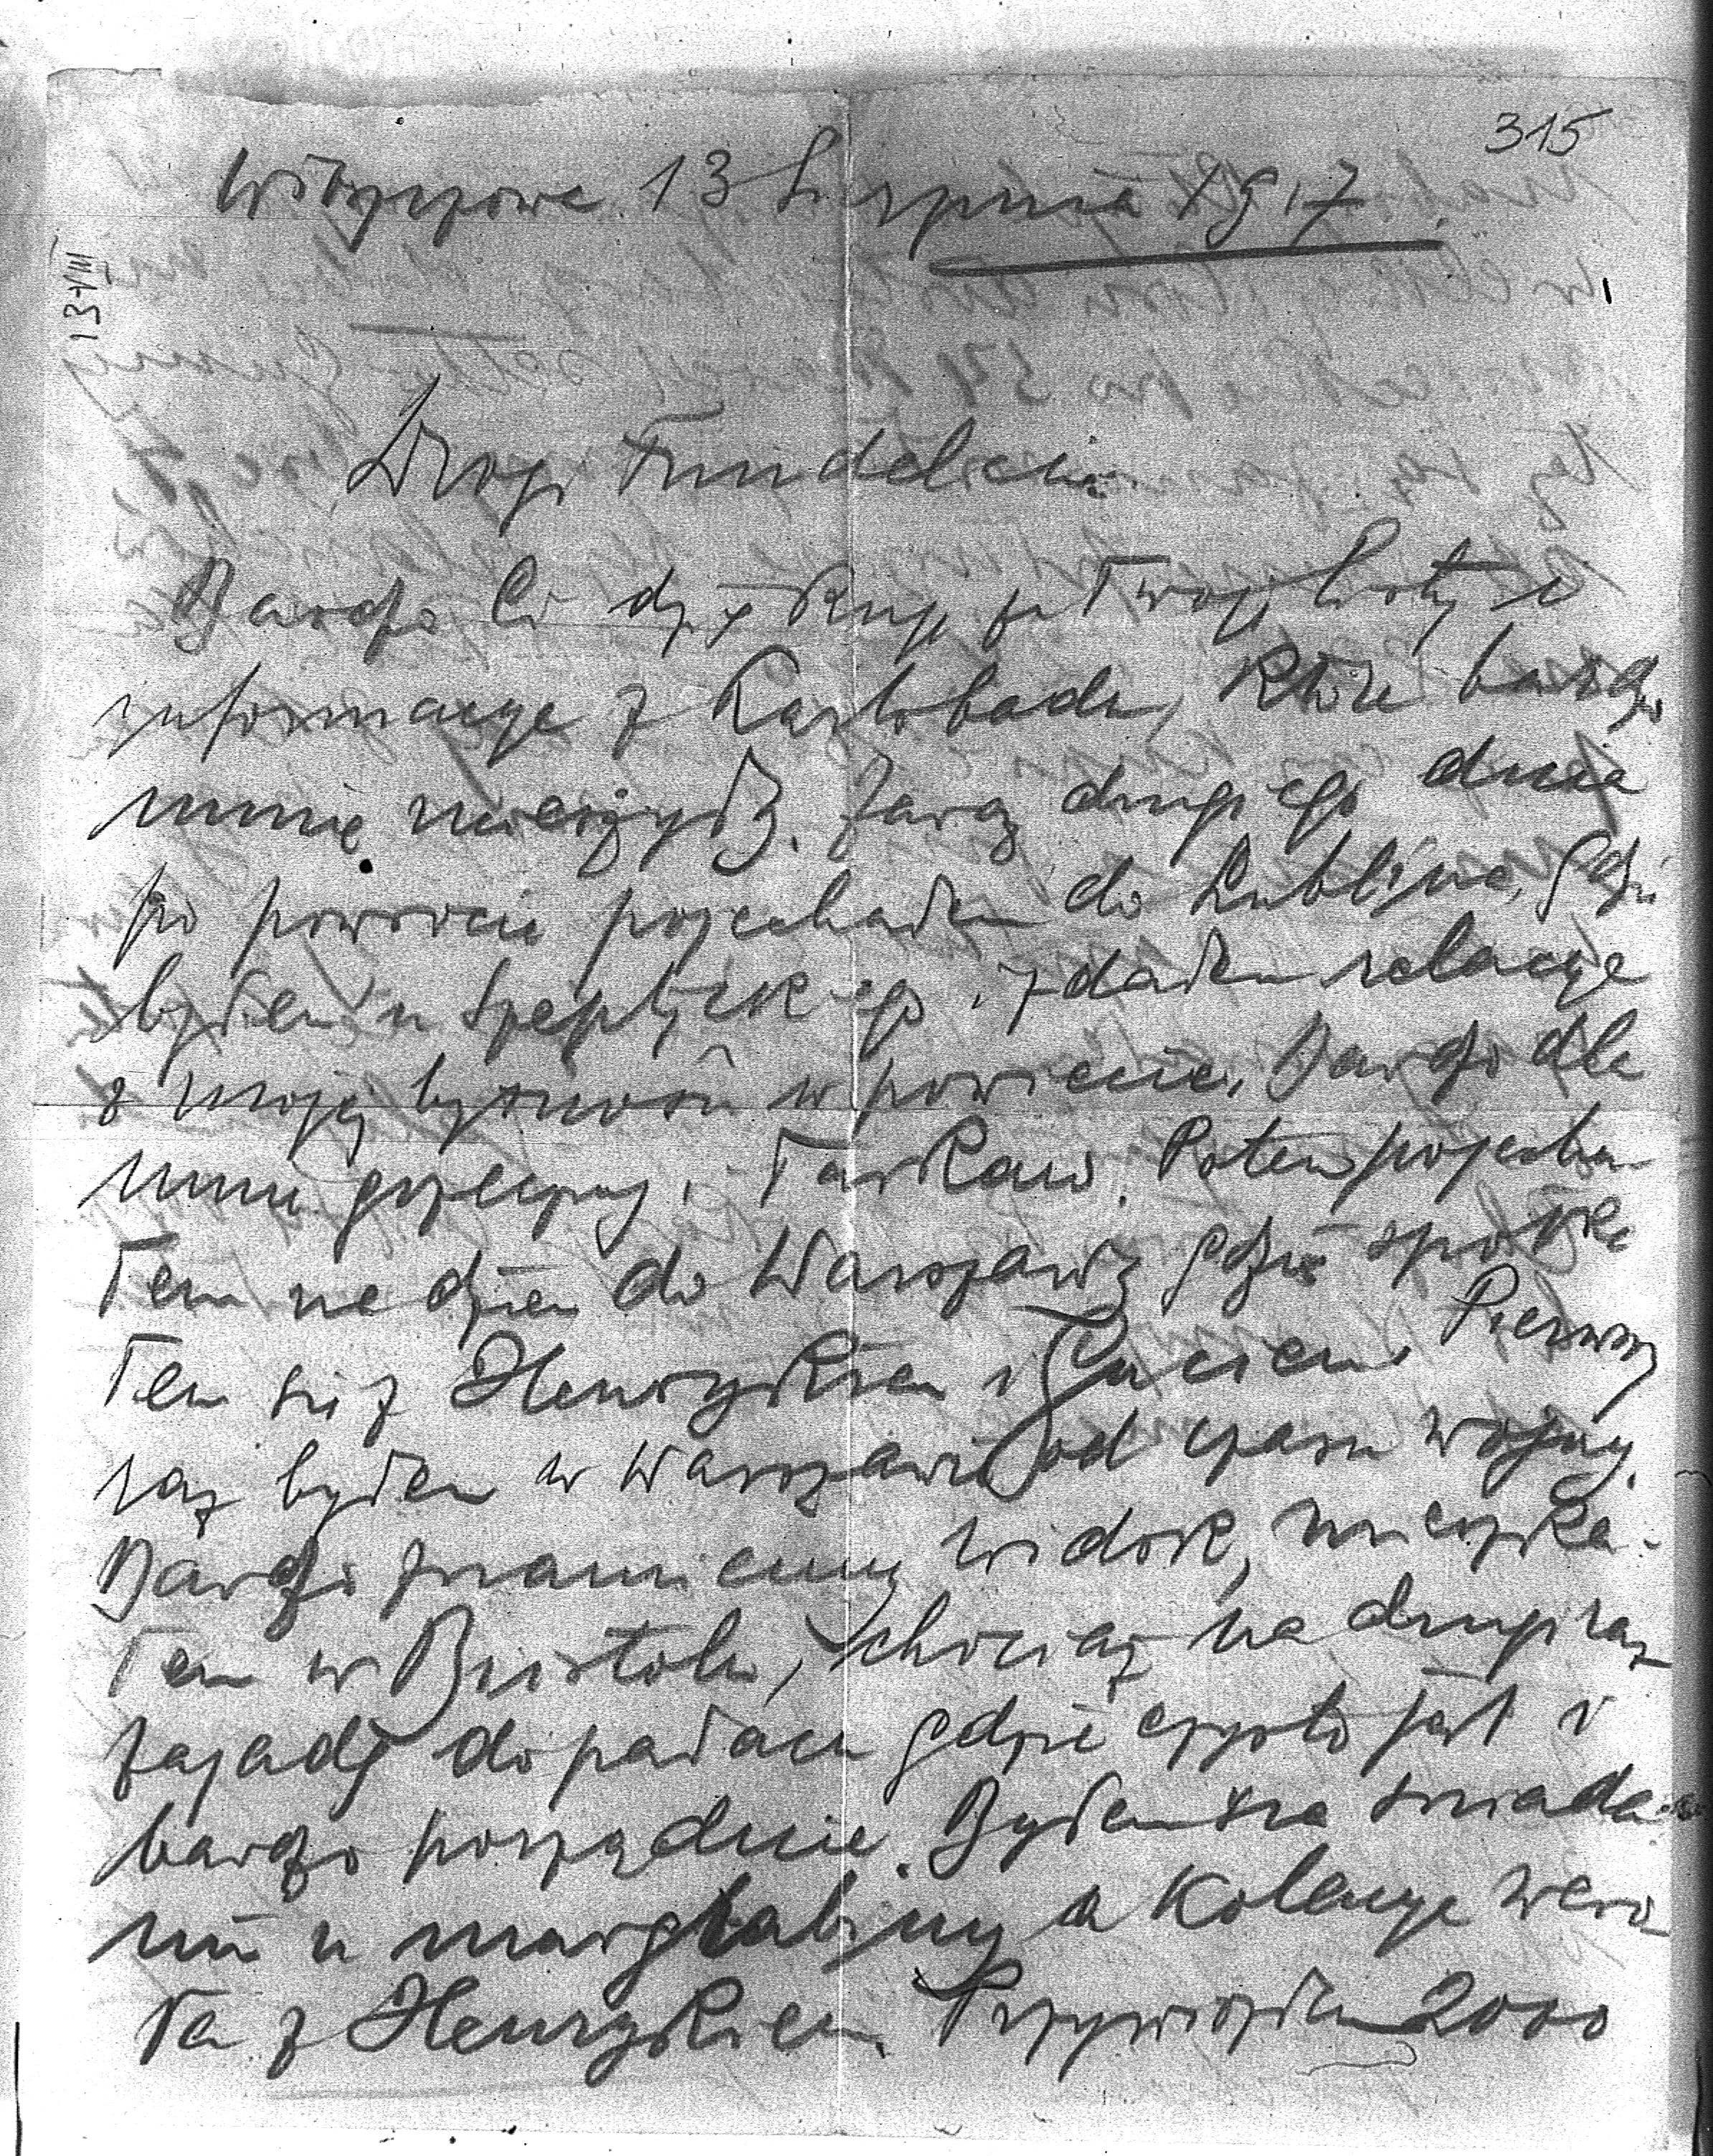 315
13 Sierpnia 1917
13 VIII
Drogi
Bardzo Ci dziękuję za Twoje listy i
informacye z Karlsbadu, które bardzo
mnie ucieszyły. Zaraz drugiego dnia
po powrocie pojechałem do Lublina, gdzie
byłem u Szeptyckiego i zdałem relacye
z mojej bytności w powiecie. Bardzo dla
mnie grzeczny i łaskaw. Potem pojecha
łem na dzień do Warszawy gdzie spotka
łem się z Henrykiem i Guciem. Pierwszy
raz byłem w Warszawie od czasu wojny.
Bardzo zmieniony widok, mieszka-
łem w Bristolu, chociaż na drugi raz
zajadę do pałacu gdzie czysto jest i
bardzo porządnie. Byłem na śniada-
niu u margrabiny a kolacye
z Henrykiem. Przywiozłem 2000